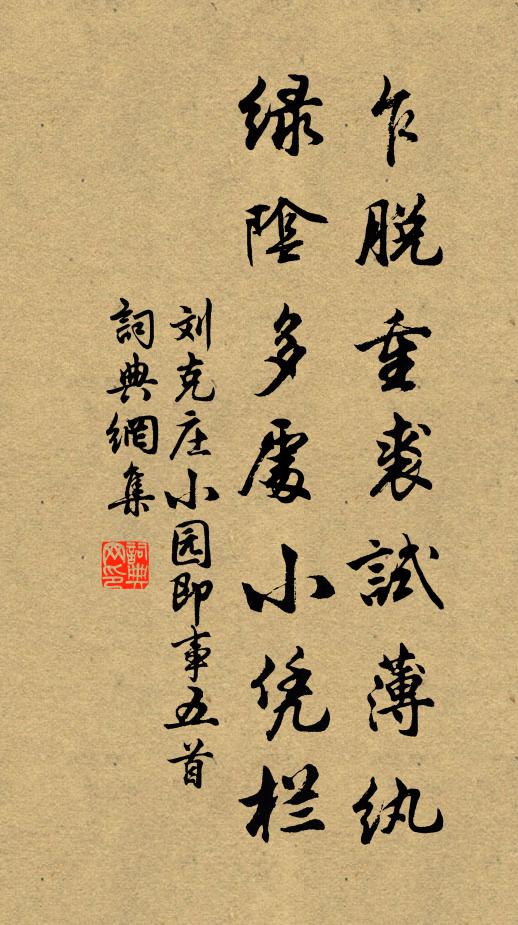 乍脱重裘試薄纨
緑陰多處小凭栏
刘克庄小园即事五首
詞典網集
詞典網印